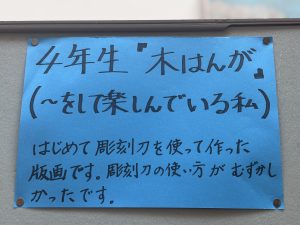 4年生『木はんが』
(～をして楽しんでいる私)
はじめて彫刻刀を使って作った
版画です。彫刻刀の使い方がむずかし
かったです。